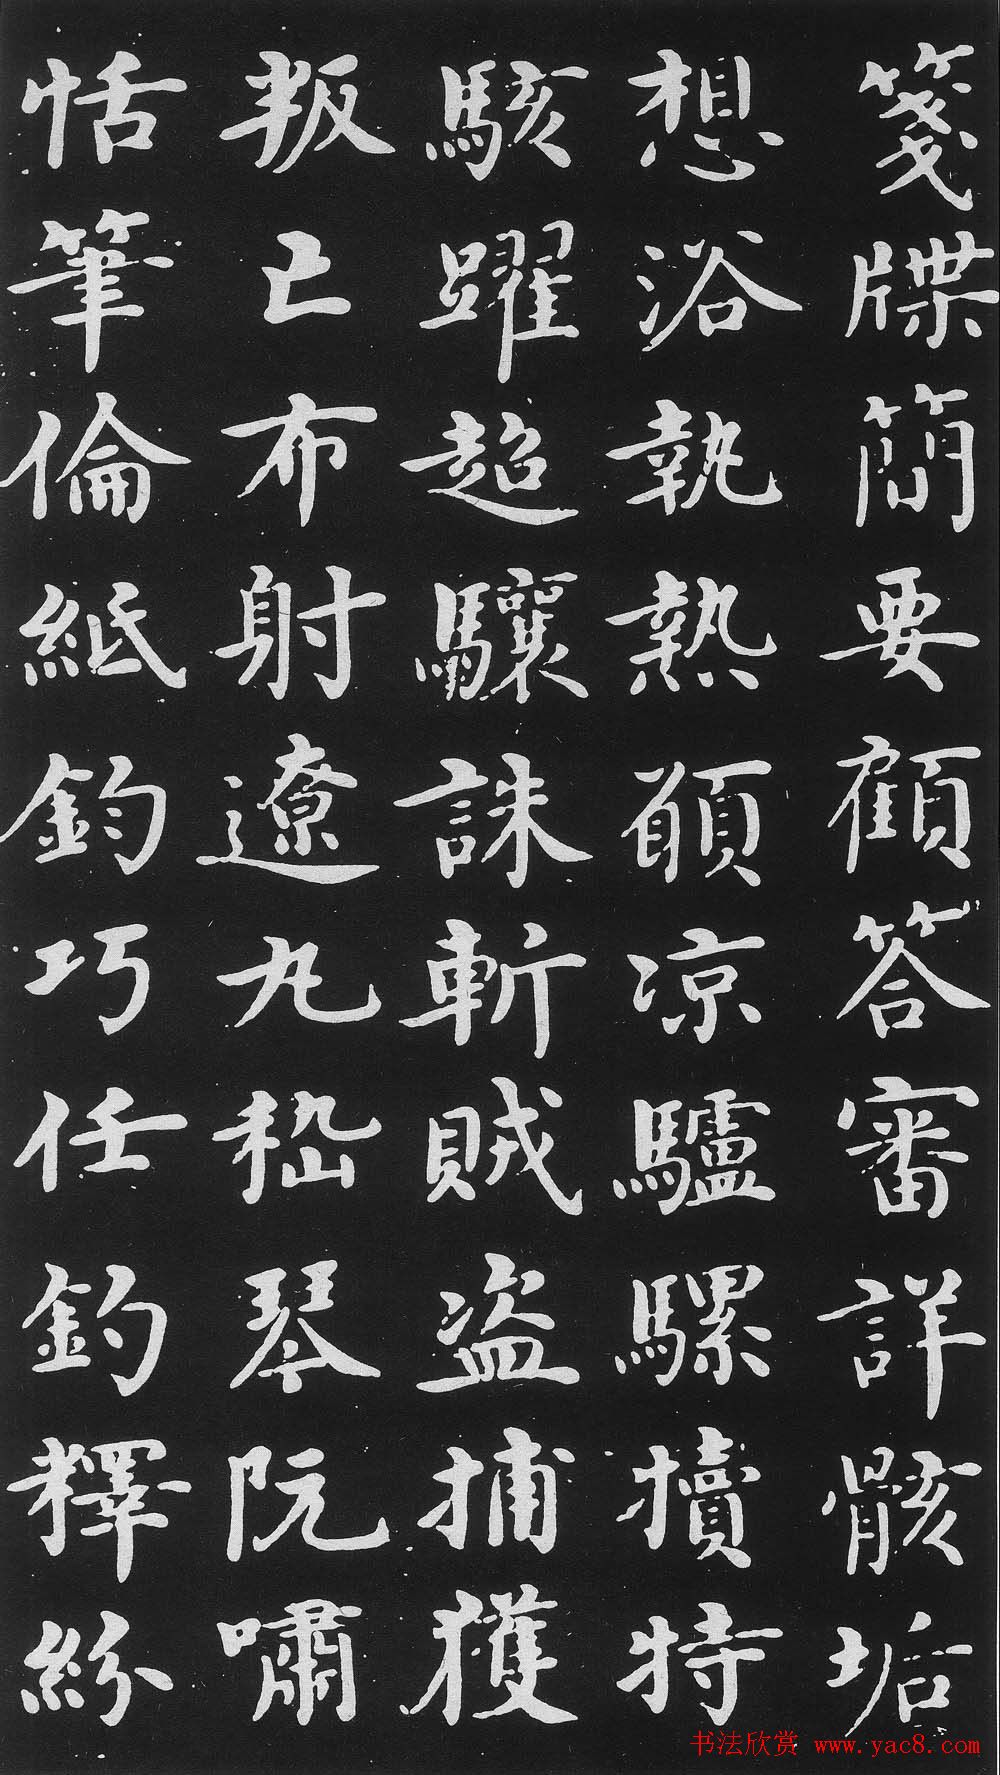 箋牒簡要顧答審詳骸垢
想浴執熱願凉驢騾犢特
駭躍超驤誅斬賊盜捕獲
叛亡布射遼丸嵇琴阮嘯
恬筆倫紙鈞巧任釣釋紛
书法欣赏 www.yac8.com